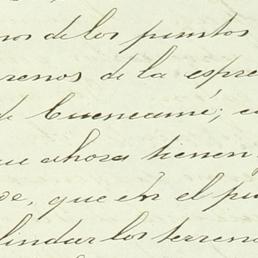 nos de los puntos
renos de la espre
de Cuencamé; e
ue ahora tienen
de, que en el pu
lindar los terreno